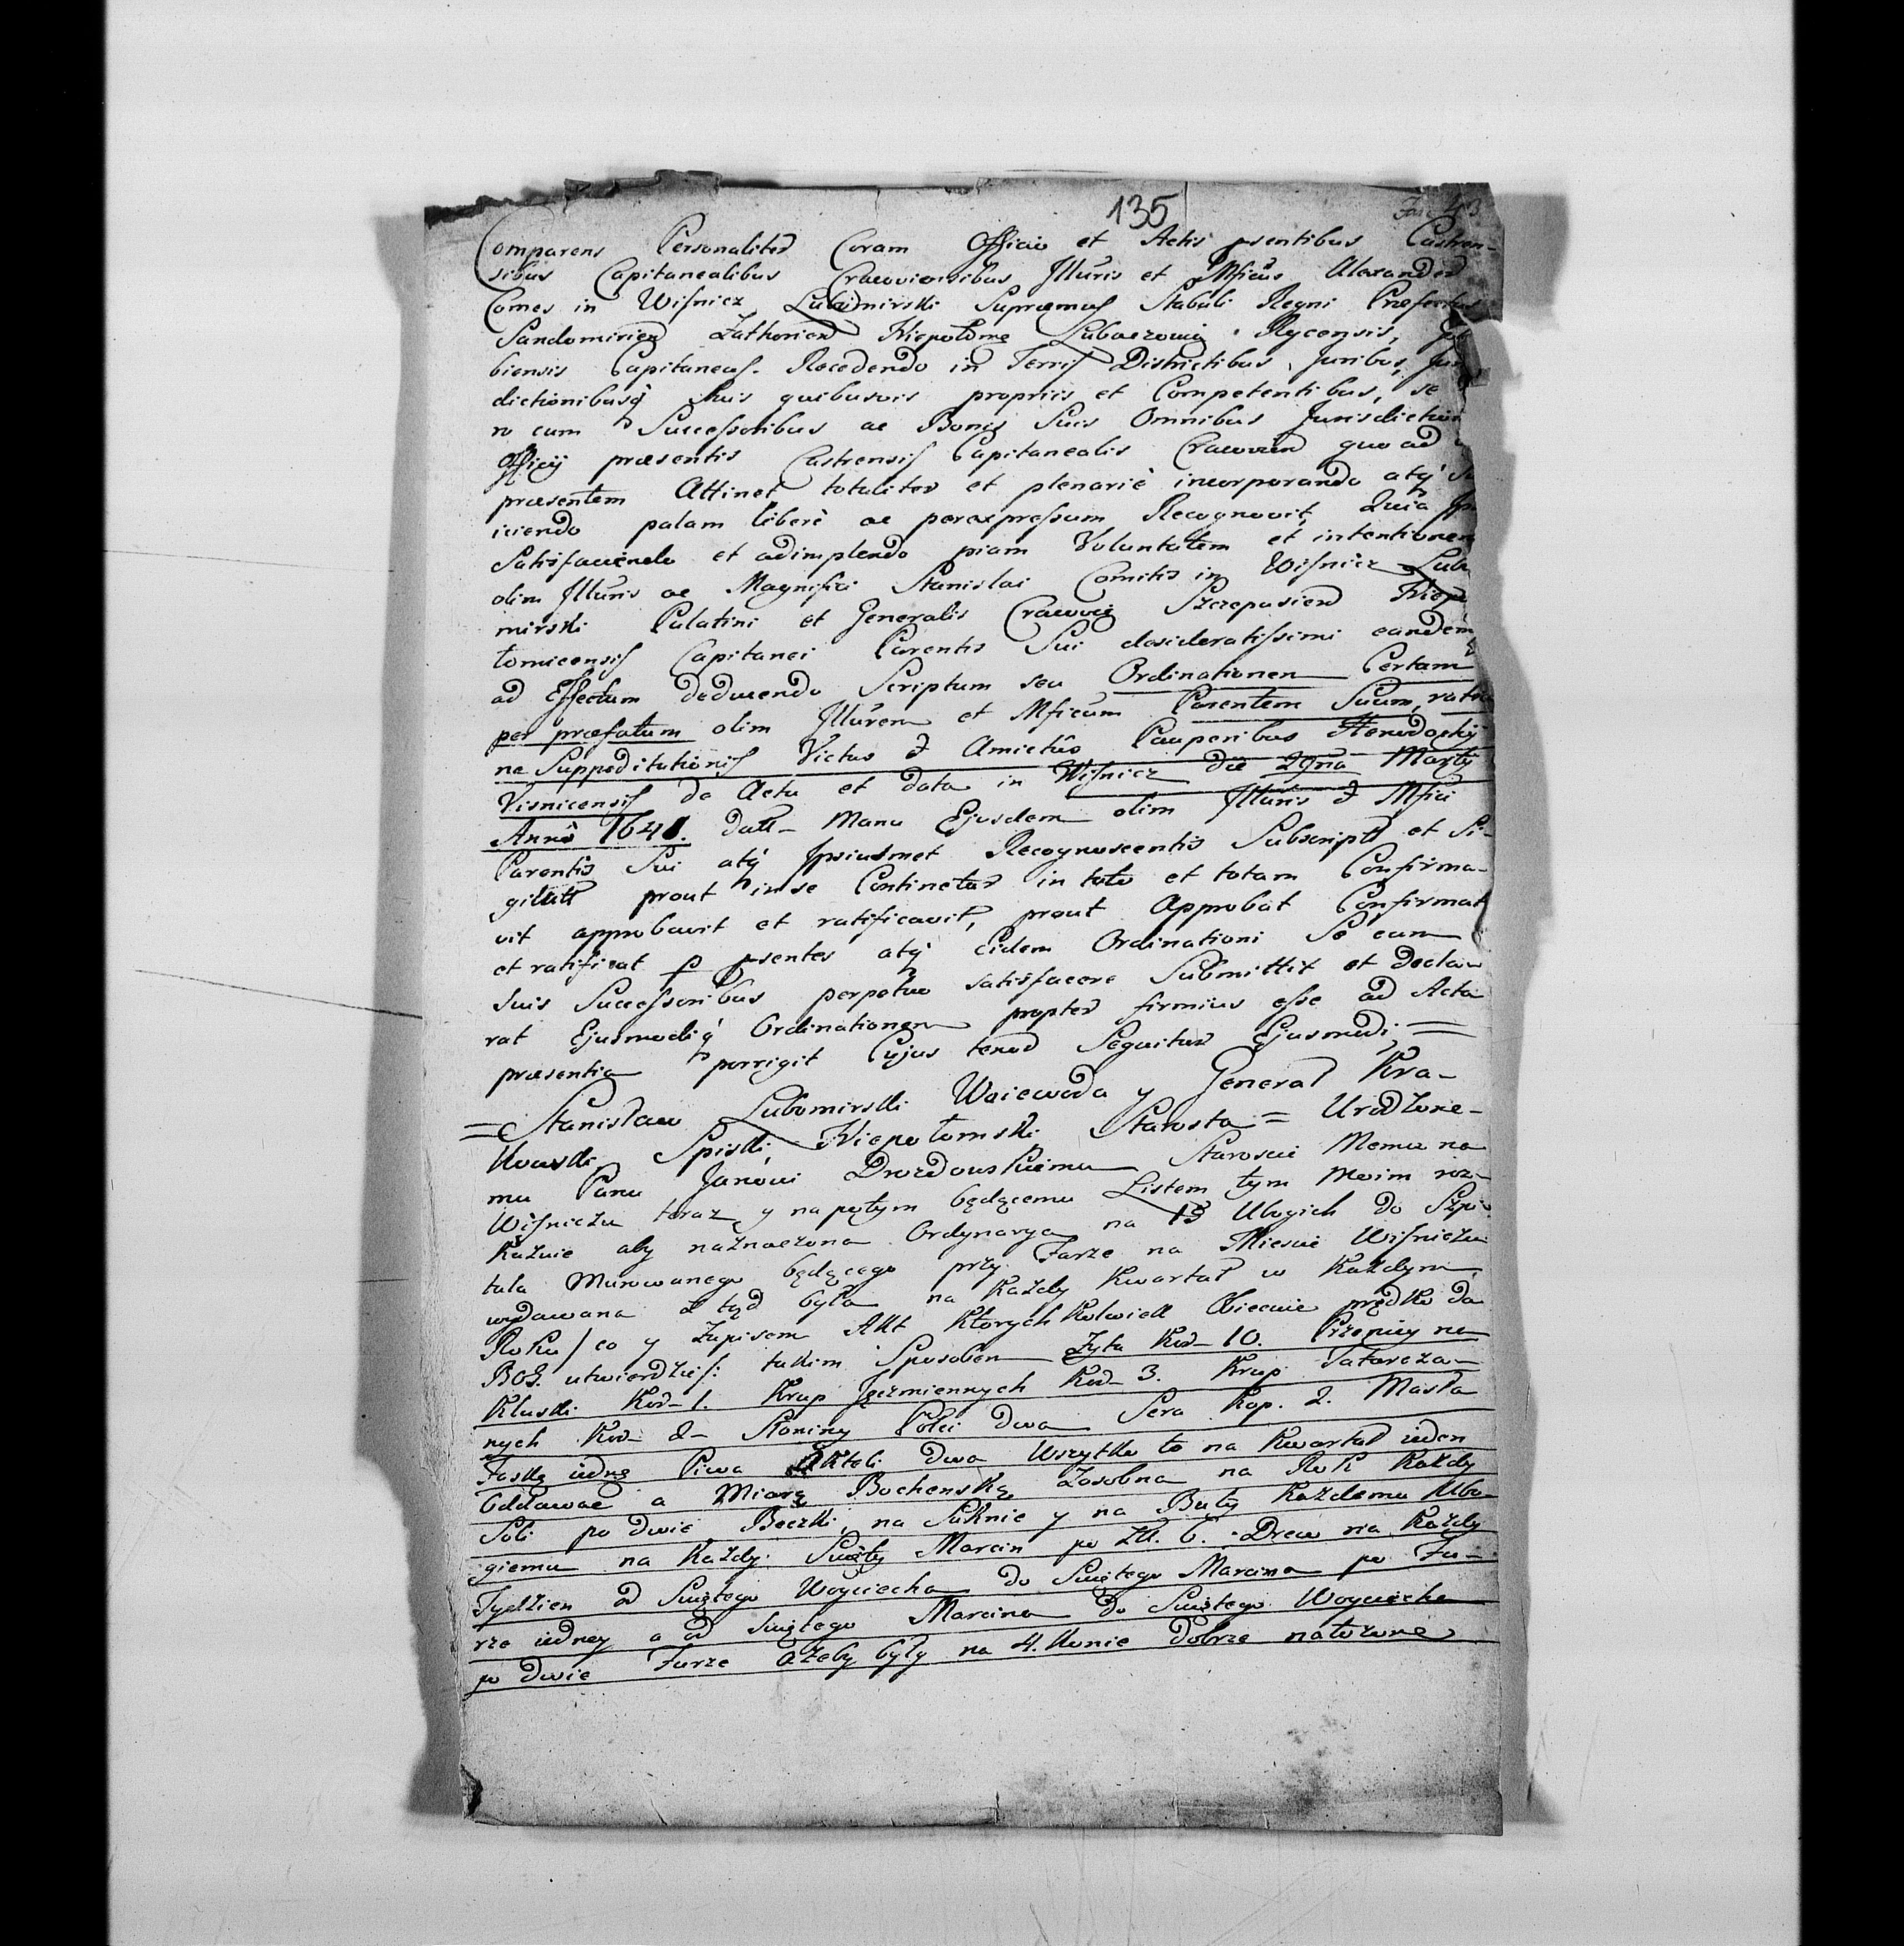 135
Comparens Personaliter Coram Officio et Actis psentibus Castren-
sibus Capitanealibus Cracoviensibus Illuris et Mficus Alexander
Comes in Wiśnicz Lubomirski Supremus Stabuli Regni Praefectus
Sandomirien Zathorien Niepołome Lubaczovię Rycensis,
biensis Capitaneus. Recedendo in Terris Districtibus, Juribus,
dictionibusq́ Suis quibusvis propriis et Competentibus, se
ro cum Successoribus ac Bonis Suis Omnibus Jurisdiction
Officij praesentis Castrensis Capitanealis Cracovien quo ad
praesentem Attinet totaliter et plenariè incorporando atq́
iiciendo palam liberè ac per expressum Recognovit, Quia
Satisfaciendo et adimplendo piam Voluntatem et intentionem
olim Illuris ac Magnifici Stanislai Comitis in Wiśnicz Lub
mirski Palatini et Generalis Cracovię Szczepusien Niepo
lomicensis Capitanei Parentis Sui desideratissimi eandem
ad Effectum deducendo Scriptum seu Ordinationem Certam
per praefatum olim Illurem et Mficum Parentem Suum, ratio
ne Suppeditationis Victus & Amictûs Pauperibus Xenodochij
Visnicensis de Actu et data in Wiśnicz die 29na Martij
Anno 1641. datt- Manu Ejusdem olim Illuris & Mfici
Parentis Sui atq́ Ipsiusmet Recognoscentis Subscriptt et Si-
gillatt prout in se Continetur in toto et totam Confirma-
vit approbavit et ratificavit, prout Approbat Confirmat
et ratificat p psentes atq́ Eidem Ordinationi Se cum
suis Successoribus perpetuo satisfacere Submittit et decla-
rat Ejusmodiq́ Ordinationem propter firmius esse ad Acta
praesentia porrigit Cujus tenor Sequitur Ejusmodi; =
= Stanisław Lubomirski Woiewoda y Generał Kra-
kowski, Spiski, Niepołomski Starosta = Urodzone-
mu Panu Janowi Drozdowskiemu Staroscie Memu na
Wiśniczu teraz y napotym będącemu Listem tym Moim roz-
kazuie aby naznaczona Ordynarya na 13 Ubogich do Szpi-
tala Murowanego będącego przy Farze na Miescie Wiśniczu
wydawana z tąd była na Każdy Kwartał w Każdym
Roku / co y Zapisem Akt Ktorych Kolwiek Obiecuie prędko da
BOG. utwierdzić /: takim Sposobem Zyta Kor- 10. Pszenicy na
Kluski Kor- 1. Krup Jęczmiennych Kor- 3. Krup Tatarcza-
nych Kor- 2- Słoniny Połci dwa Sera Kop. 2. Masła
Faskę iednę Piwa Achteli dwa Wszytko to na Kwartał ieden
Oddawac a Miarę Bochenską Zosobna na Rok Każdy
Soli po dwie Beczki, na Suknie y na Buty Każdemu Ubo-
giemu na Każdy Swięty Marcin po Zł. 6. Drew na Każdy
Tydzien od Swiętego Woyciecha do Swiętego Marcina po Fu-
rze iedney a od Swiętego Marcina do Swiętego Woyciecha
po dwie Furze ażeby były na 4. Konie dobrze nałożone